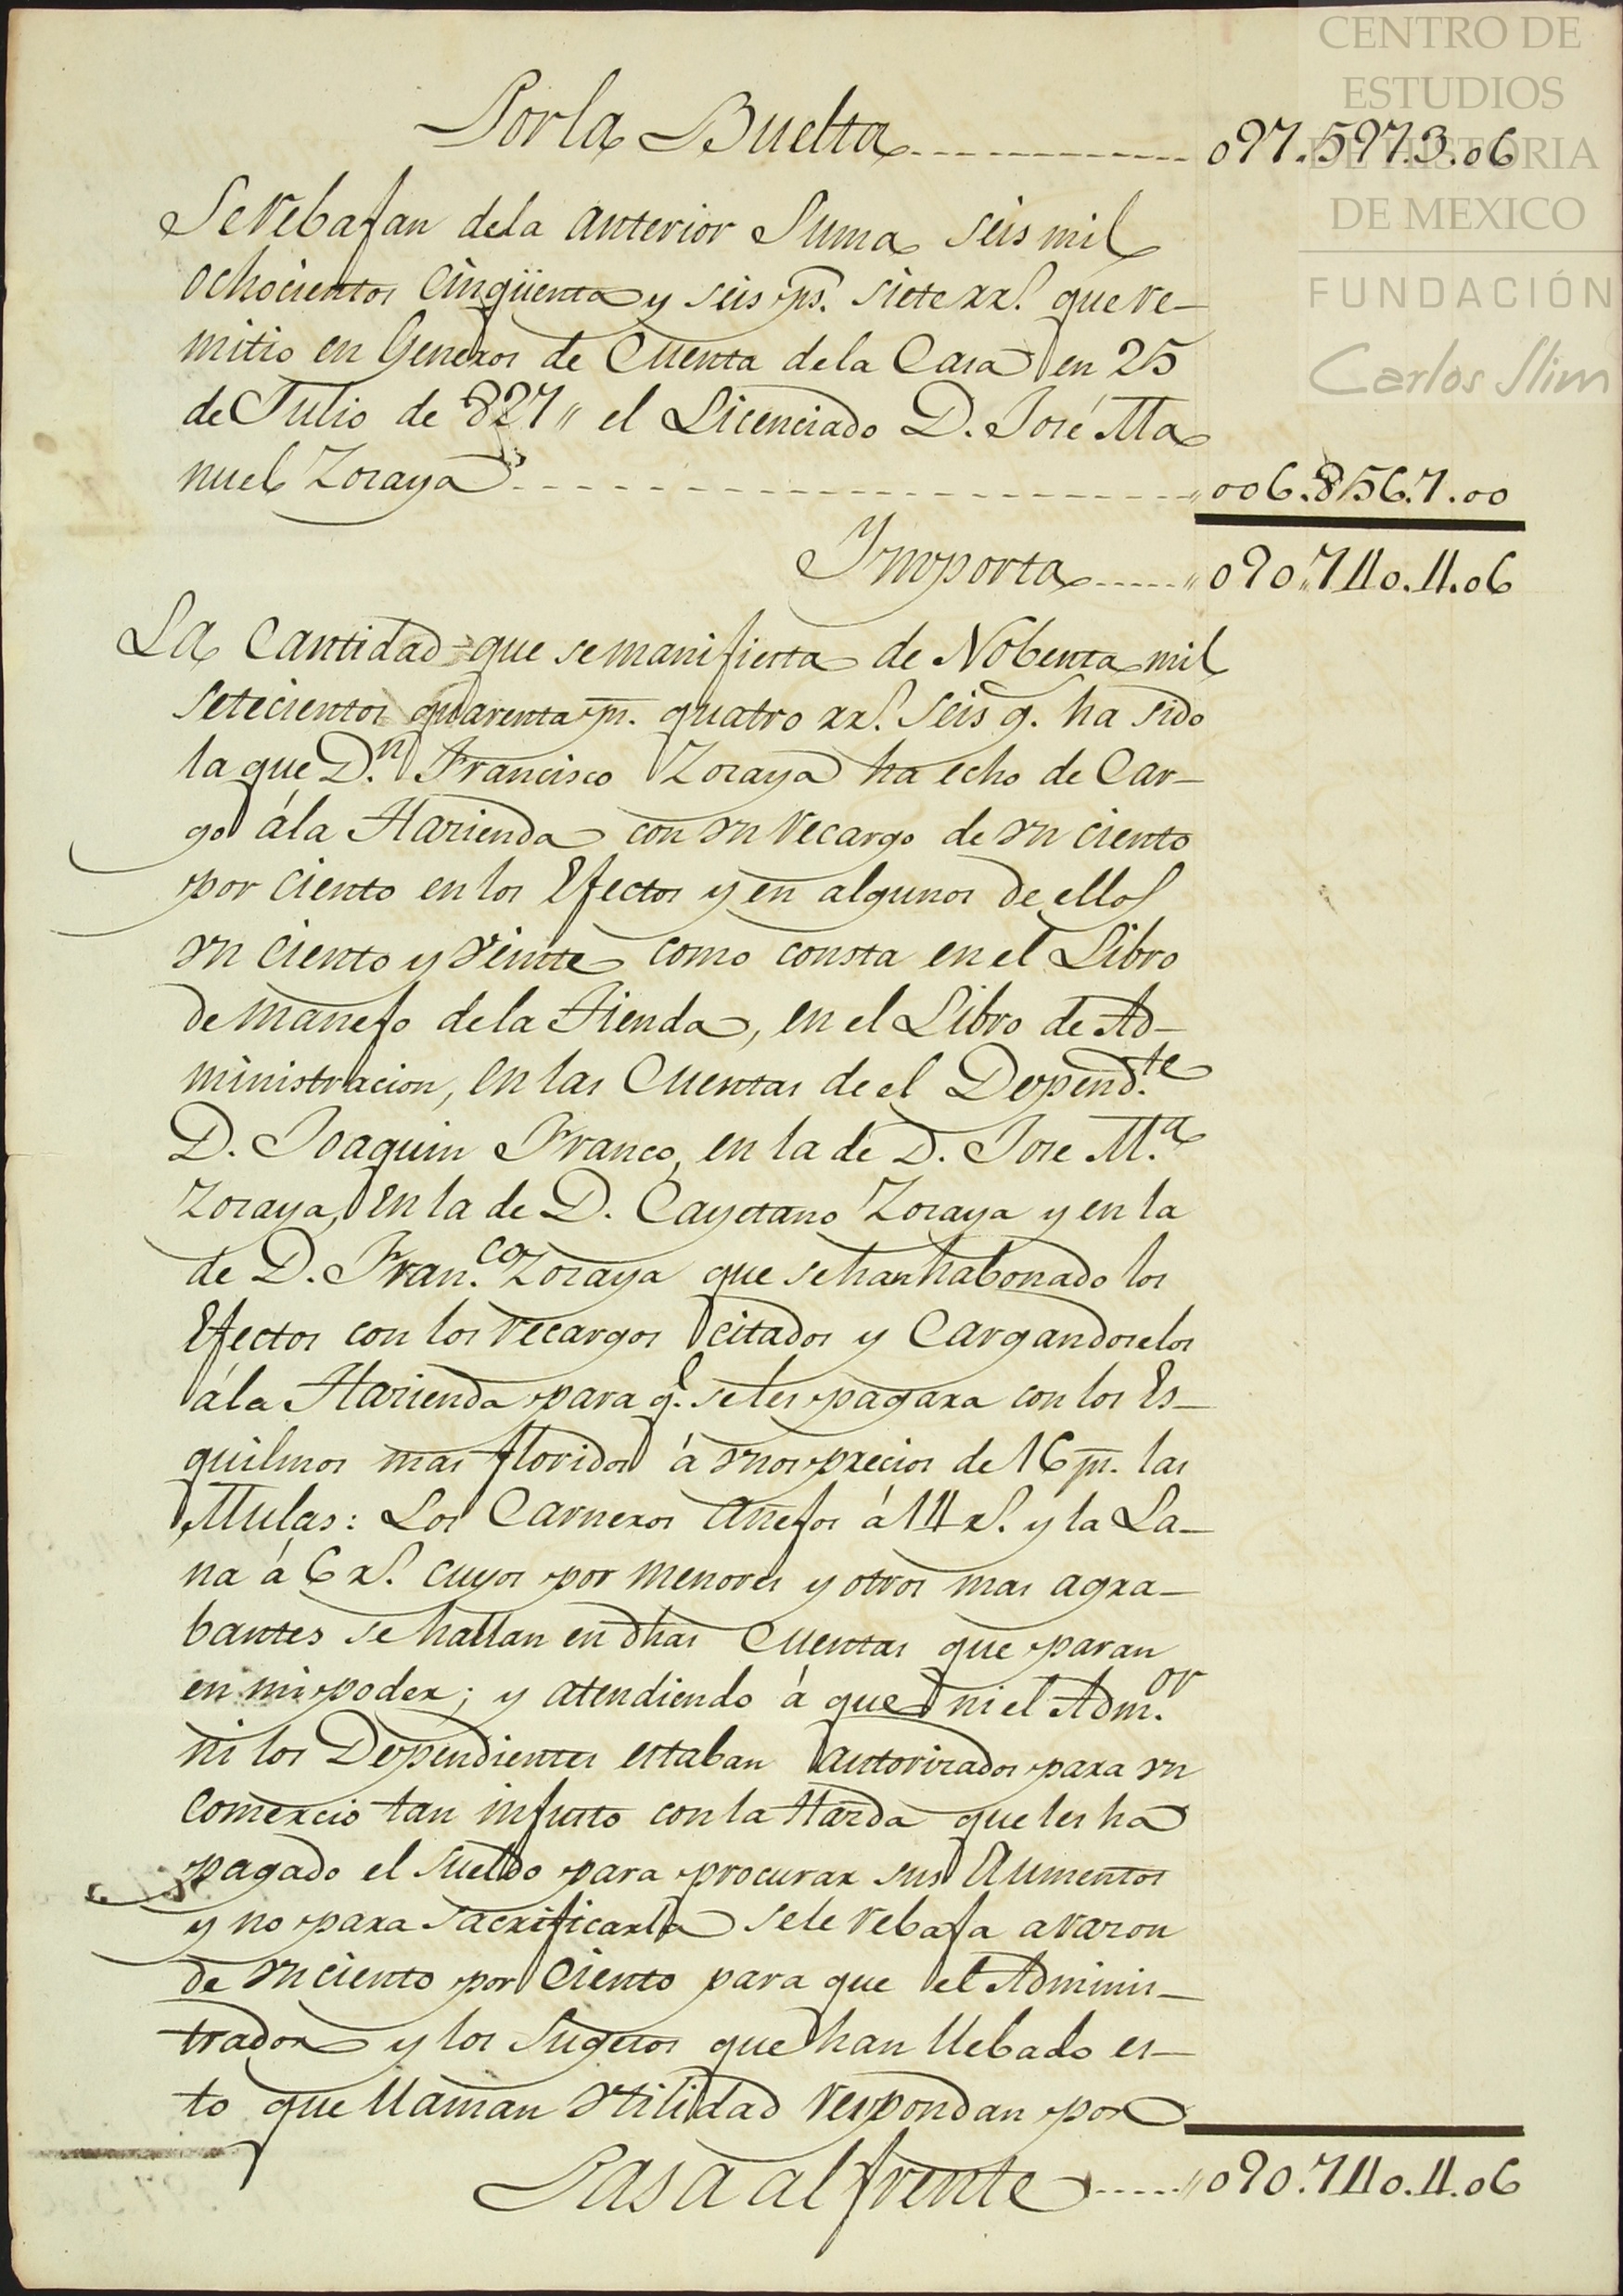 CENTRO DE
ESTUDIOS
DE HISTORIA
DE MEXICO
FUNDACIÓN
Carlos Slim
Por la Buelta ------------ 097.597.3.06
Se rebajan de la anterior Suma seis mil
ochocientos cinqüenta y seis ps. siete rr.s que re-
mitio en Generos de Cuenta de la Casa en 25
de Julio de 827,, el Licenciado D. José Ma
nuel Zozaya ------------ 006.856.7.00
Ymporta ------ 090.740.4.06
La Cantidad que se manifiesta de Nobenta mil
setecientos quarenta ps. quatro rr.s seis g. ha sido
la que D.n Francisco Zozaya ha echo de Car-
go á la Hazienda con un recargo de un ciento
por ciento en los Efectos y en algunos de ellos
un ciento y veinte como consta en el Libro
de manejo de la Tienda, en el Libro de Ad-
ministracion, en las Cuentas de el Depend.te
D. Joaquin Franco, en la de D. Jose M.a
Zozaya, en la de D. Cayetano Zozaya y en la
de D. Fran.co Zozaya que se han habonado los
Efectos con los recargos citados y Cargandoselos
á la Hazienda para q.e se les pagara con los Es-
quilmos mas floridos á unos precios de 16 ps. las
Mulas: Los Carneros añejos á 14 r.s y la La-
na á 6 r.s cuyos por menores y otros mas agra-
bantes se hallan en dhas Cuentas que paran
en mi poder; y atendiendo á que ni el Adm.or
ni los Dependientes estaban autorizados para un
Comercio tan injusto con la Hazda que les ha
pagado el sueldo para procurar sus Aumentos
y no para sacrificarla se le rebaja a razon
de un ciento por Ciento para que el Adminis-
trador y los Sugetos que han llebado es-
to que llaman utilidad respondan por
Pasa al frente ------ 090.740.4.06